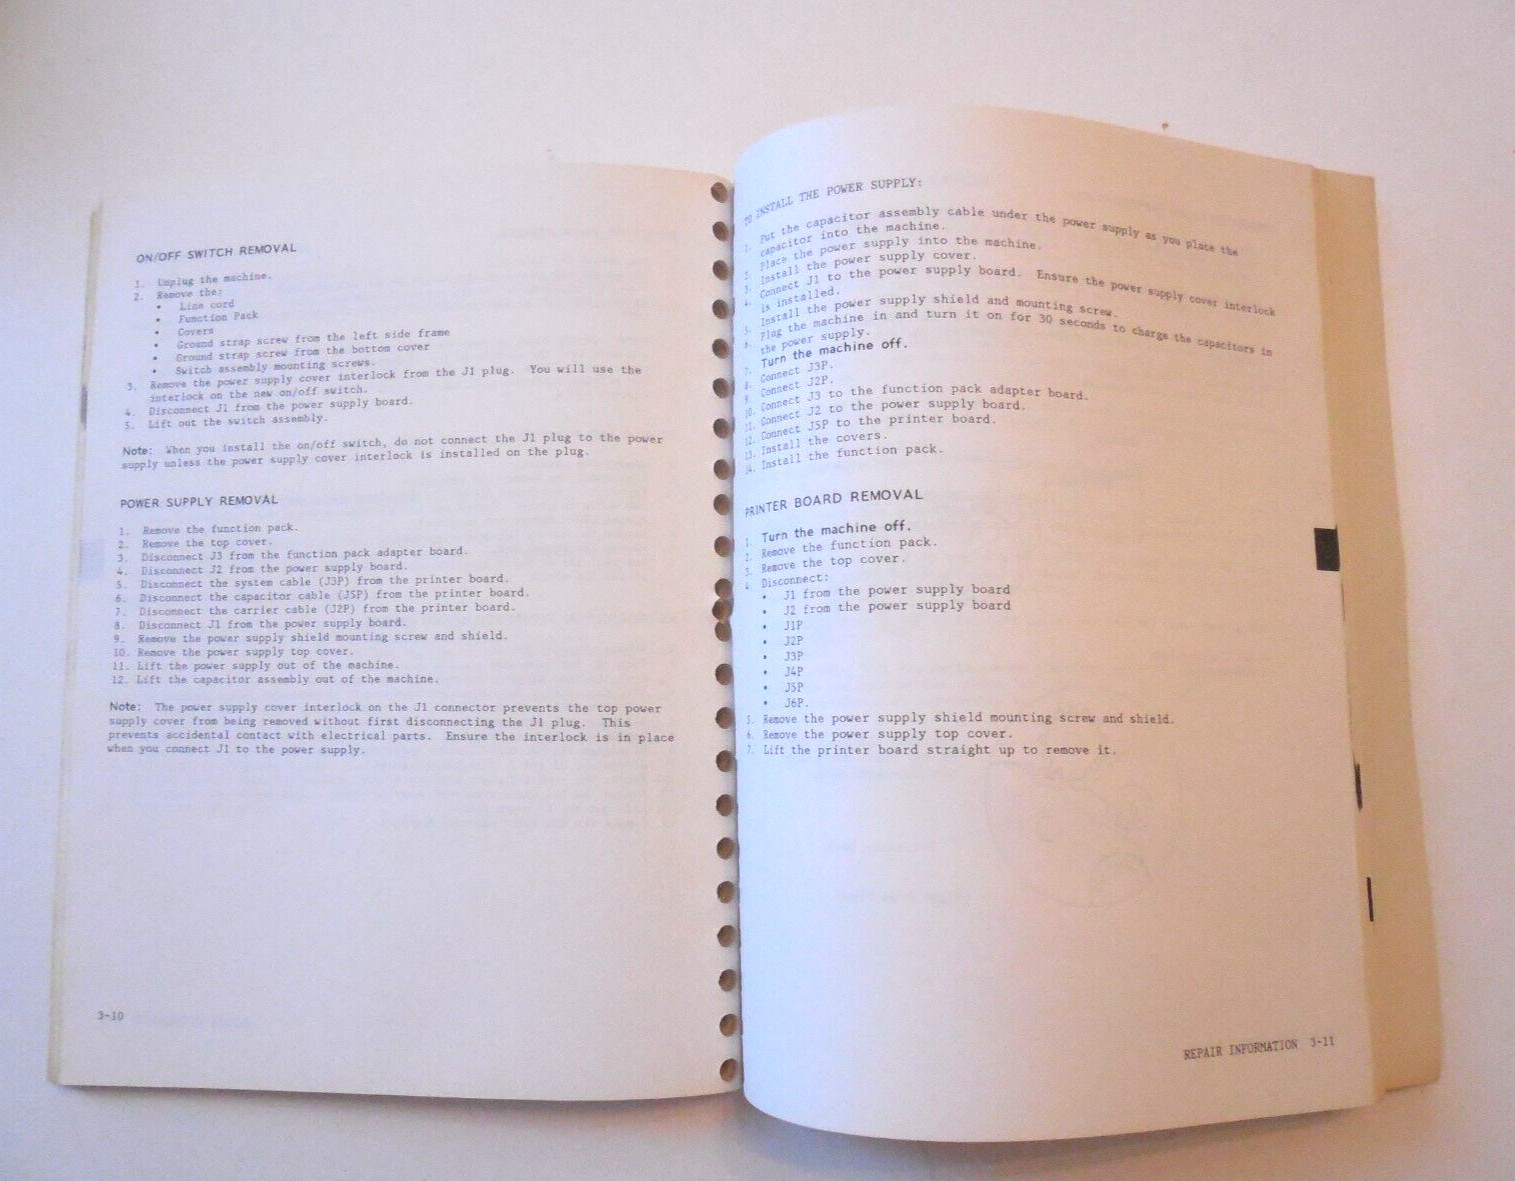 ON/OFF SWITCH REMOVAL
1. Unplug the machine.
2. Remove the:
• Line cord
• Function Pack
• Covers
• Ground strap screw from the left side frame
• Ground strap screw from the bottom cover
• Switch assembly mounting screws.
3. Remove the power supply cover interlock from the J1 plug. You will use the
interlock on the new on/off switch.
4. Disconnect J1 from the power supply board.
5. Lift out the switch assembly.
Note: When you install the on/off switch, do not connect the J1 plug to the power
supply unless the power supply cover interlock is installed on the plug.
POWER SUPPLY REMOVAL
1. Remove the function pack.
2. Remove the top cover.
3. Disconnect J3 from the function pack adapter board.
4. Disconnect J2 from the power supply board.
5. Disconnect the system cable (J3P) from the printer board.
6. Disconnect the capacitor cable (J5P) from the printer board.
7. Disconnect the carrier cable (J2P) from the printer board.
8. Disconnect J1 from the power supply board.
9. Remove the power supply shield mounting screw and shield.
10. Remove the power supply top cover.
11. Lift the power supply out of the machine.
12. Lift the capacitor assembly out of the machine.
Note: The power supply cover interlock on the J1 connector prevents the top power
supply cover from being removed without first disconnecting the J1 plug. This
prevents accidental contact with electrical parts. Ensure the interlock is in place
when you connect J1 to the power supply.
3-10
TO INSTALL THE POWER SUPPLY:
1. Put the capacitor assembly cable under the power supply as you place the
capacitor into the machine.
2. Place the power supply into the machine.
3. Install the power supply cover.
4. Connect J1 to the power supply board. Ensure the power supply cover interlock
is installed.
5. Install the power supply shield and mounting screw.
6. Plug the machine in and turn it on for 30 seconds to charge the capacitors in
the power supply.
7. Turn the machine off.
8. Connect J3P.
9. Connect J2P.
10. Connect J3 to the function pack adapter board.
11. Connect J2 to the power supply board.
12. Connect J5P to the printer board.
13. Install the covers.
14. Install the function pack.
PRINTER BOARD REMOVAL
1. Turn the machine off.
2. Remove the function pack.
3. Remove the top cover.
4. Disconnect:
• J1 from the power supply board
• J2 from the power supply board
• J1P
• J2P
• J3P
• J4P
• J5P
• J6P.
5. Remove the power supply shield mounting screw and shield.
6. Remove the power supply top cover.
7. Lift the printer board straight up to remove it.
REPAIR INFORMATION 3-11